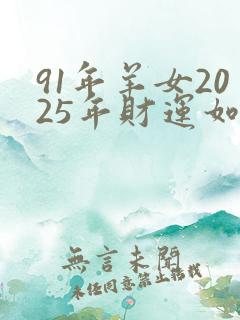 91年羊女20
25年財運如
無言未閒
未任同意禁止搬栽